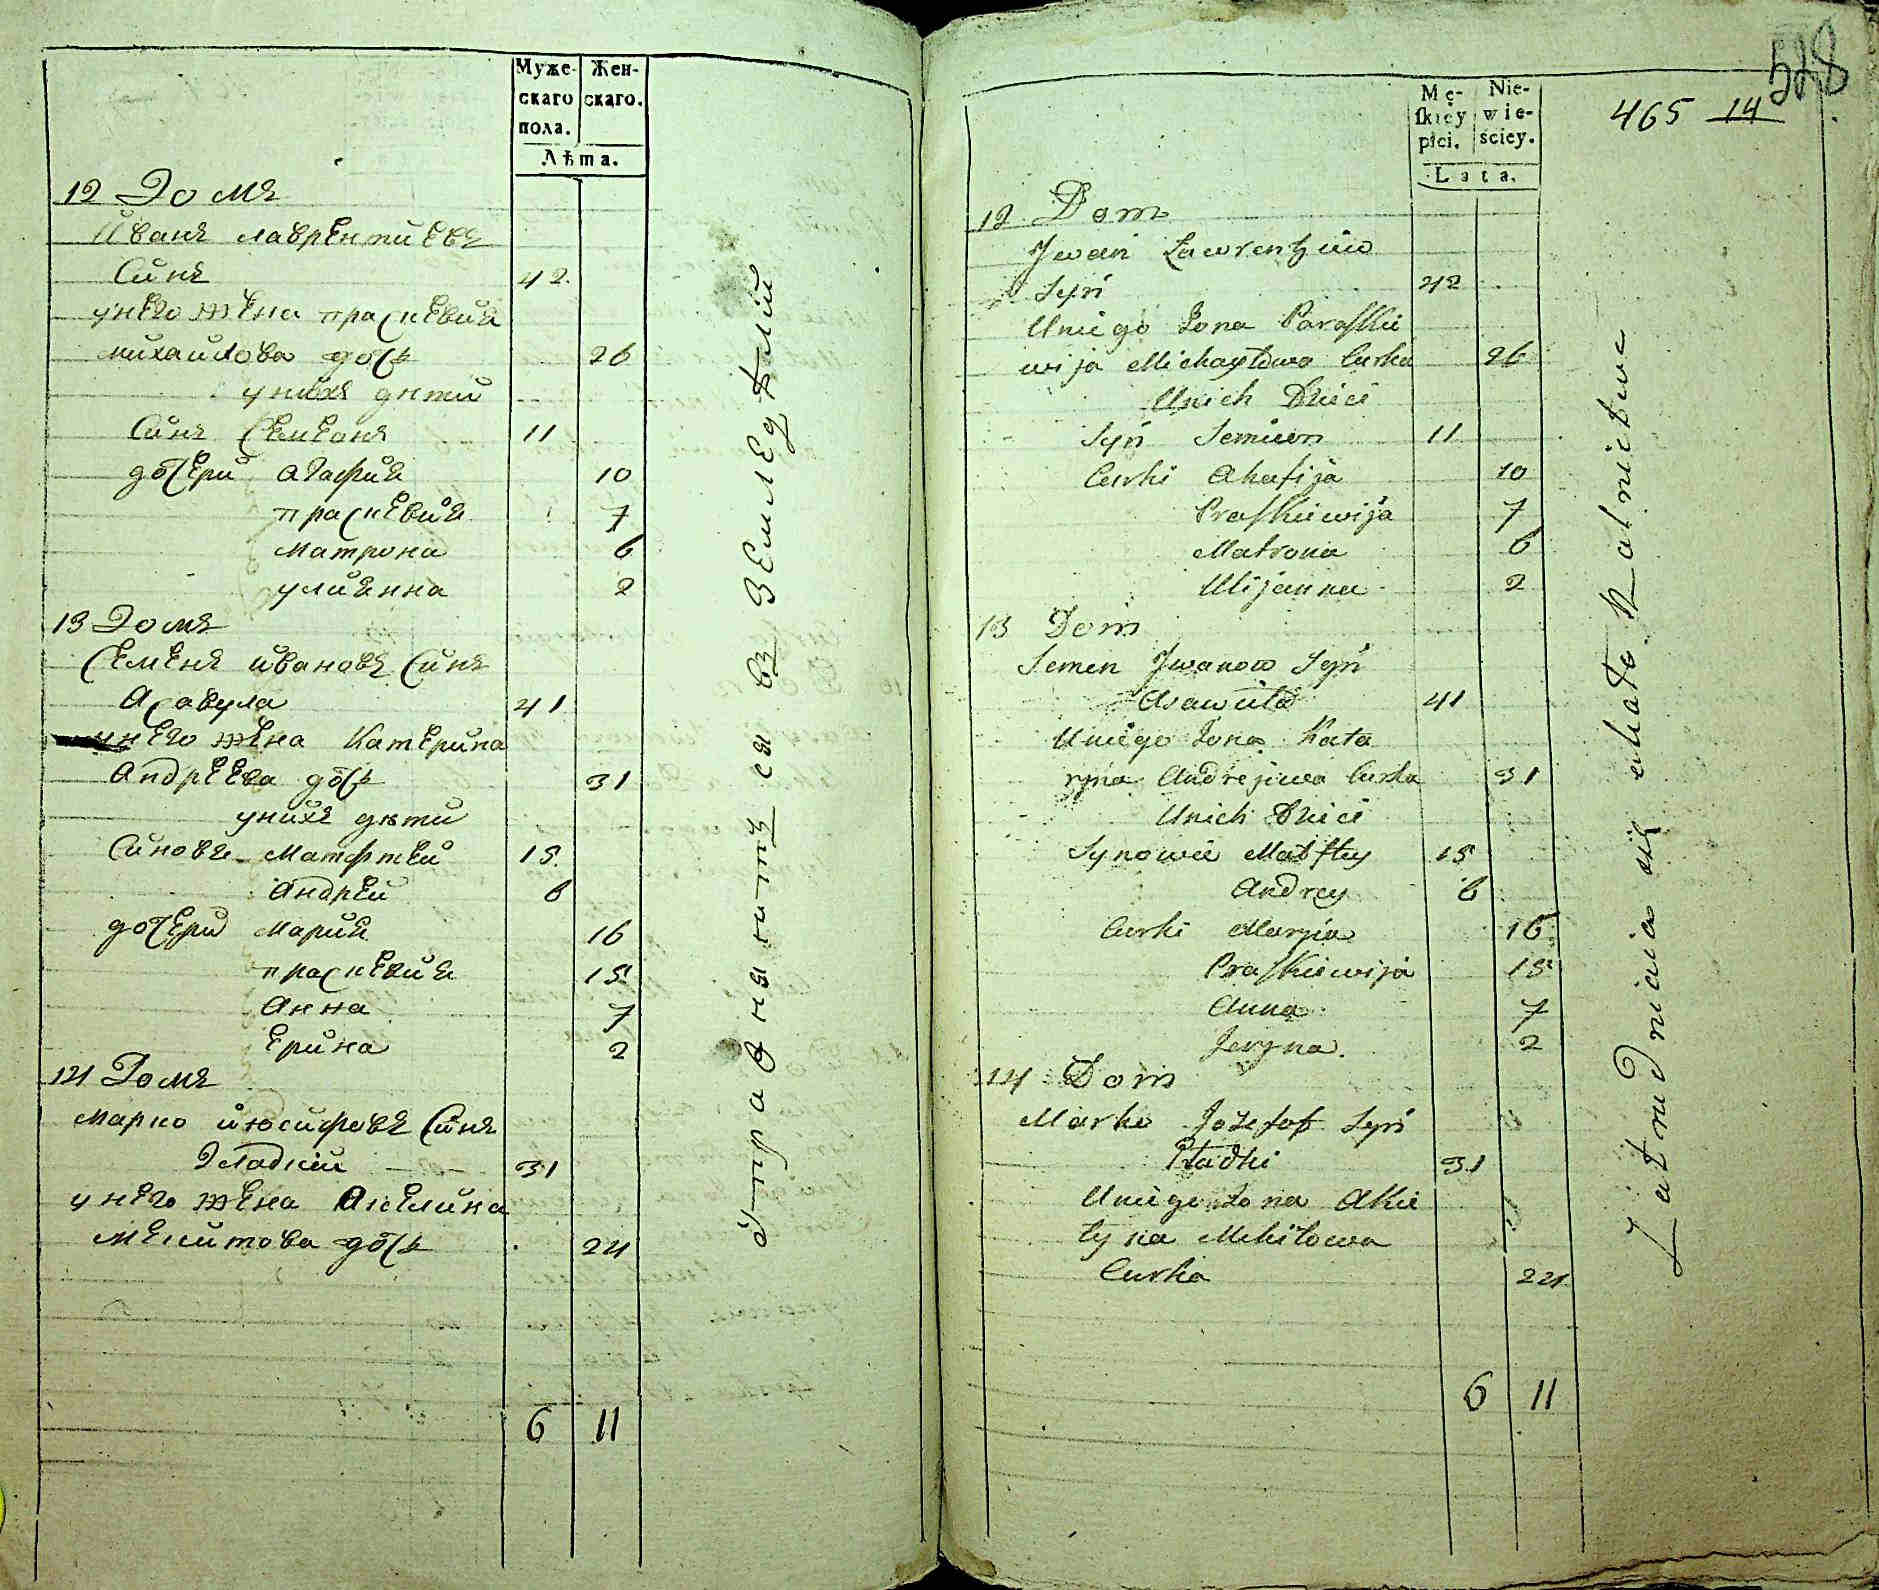 Муже-
скаго
пола.
Жен-
скаго.
Лѣта.
12 Домъ
Иванъ лаврентиевъ
Синъ 42
унего жена прасковия
михаилова дочь 26
унихъ дети
Синъ Семеонъ 11
дочери агафия 10
прасковия 7
матрона 6
улиянна 2
13 Домъ
Семенъ ивановъ Синъ
Асавула 41
унего жена Катерина
Андреева дочь 31
унихъ дѣти
Синовъя Матфтей 15
Андрей 6
дочери Мария 16
прасковия 15
Анна 7
Ерина 2
14 Домъ
марко июсифовъ Синъ
Гладкий 31
унего жена Акелина
мекитова дочь 24
6 11
упражняютъ ся въ земледѣлии
528
465 14
Mę-
skiey
płci.
Nie-
wie-
sciey.
Lata.
12 Dom
Jwan Ławrentyiw
Syn 42
Uniego Żona Paraskie
wija Michayłowa Curka 26
Unich Dzieci
Syn Semieon 11
Curki Ahafija 10
Praskiewija 7
Matrona 6
Ulijanna 2
13 Dom
Semen Jwanow Syn
Asawuła 41
Uniego Żona Kata
ryna Andrejewa Curka 31
Unich Dzieci
Synowie Matftey 15
Andrey 6
Curki Maryia 16
Praskiewija 15
Anna 7
Jeryna 2
14 Dom
Marko Jozefof Syn
Hładki 31
Uniego Żona Akie
łyna Mekitowa
Curka 24
6 11
Zatrudniaia się około Rolnictwa